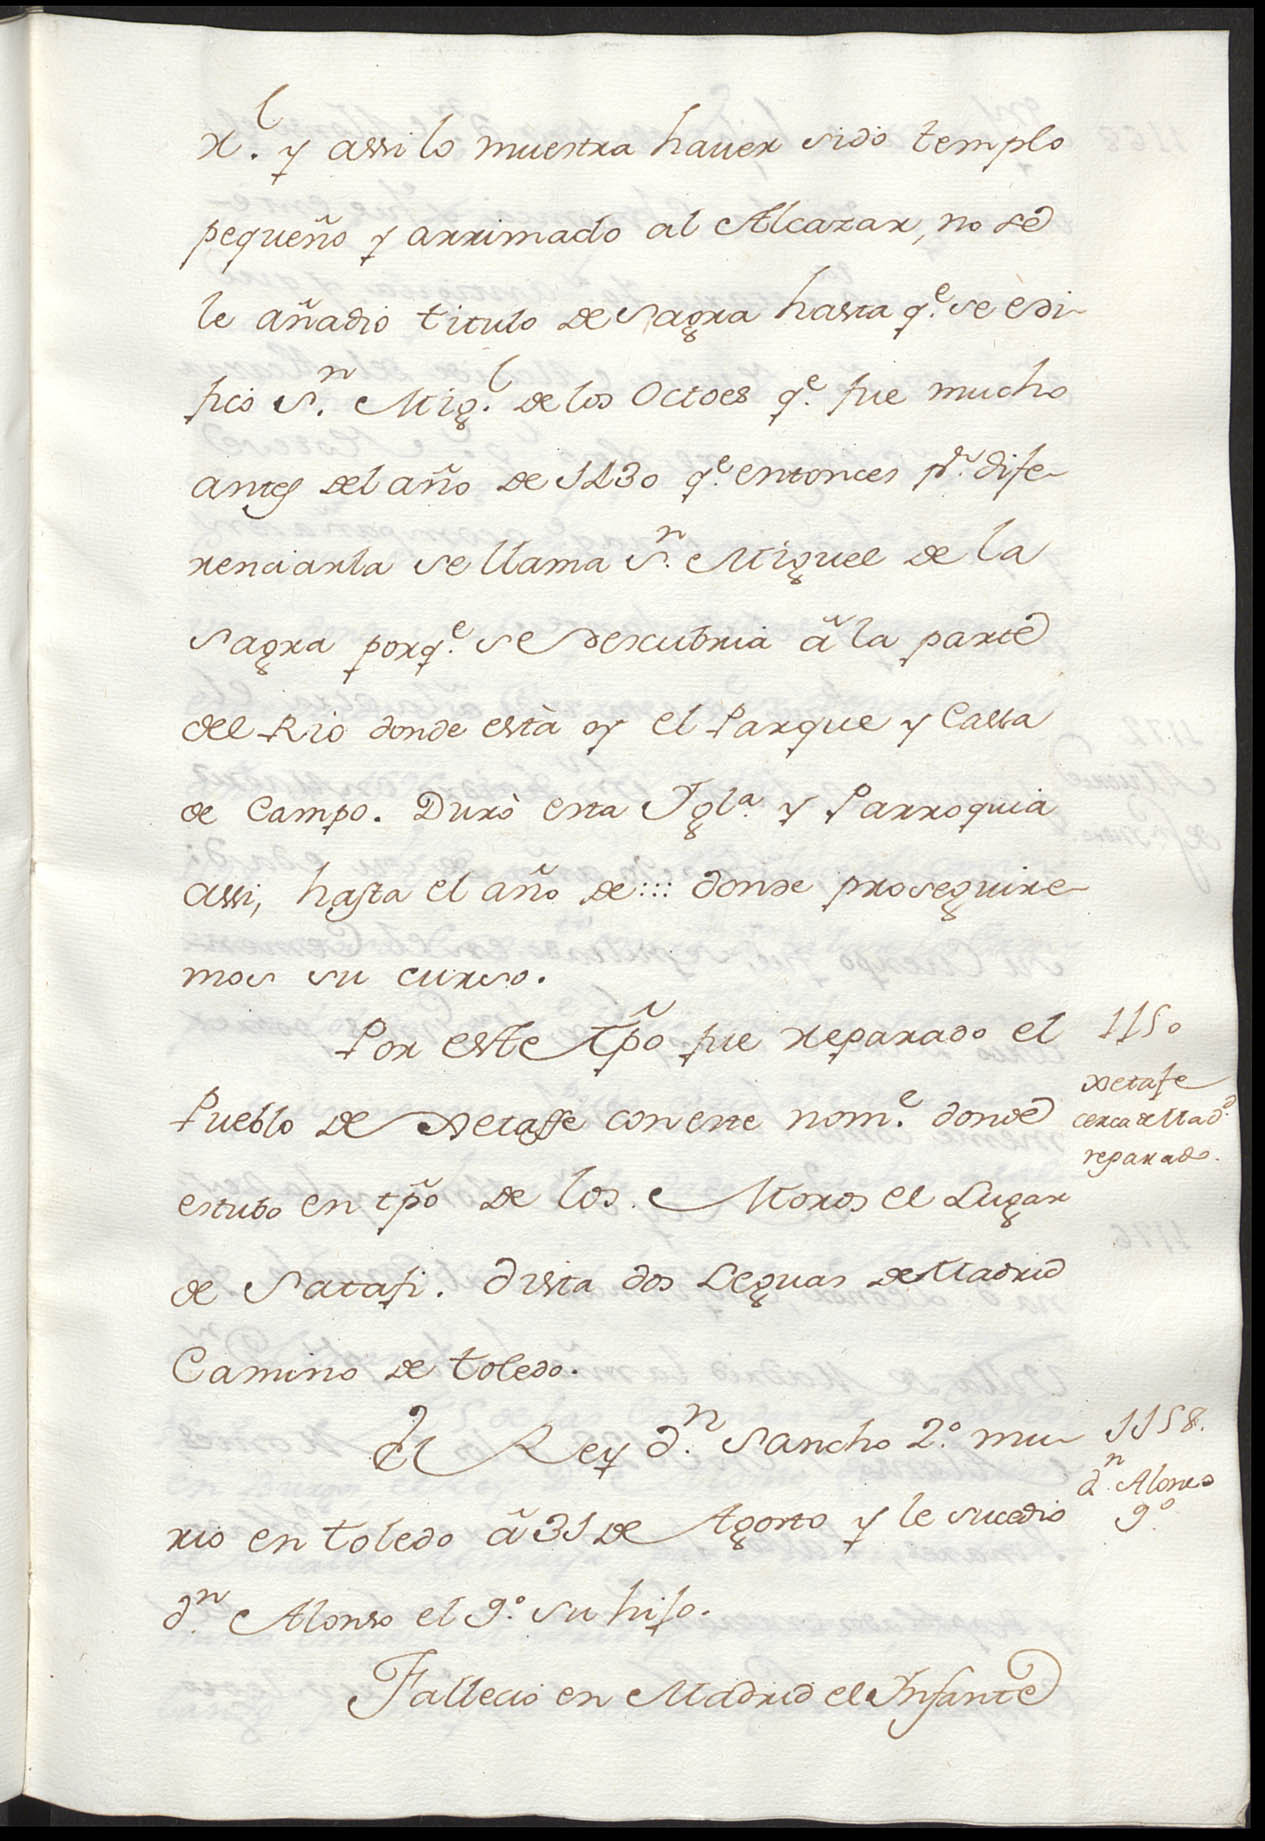 rˡ. y assi lo muestra haver sido templo
pequeño y arrimado al Alcazar, no se
le añadio titulo de Sagra hasta qᵉ. se èdi-
ficó Sⁿ. Migˡ. de los Octoes qᵉ. fue mucho
antes del año de 1430 qᵉ. entonces pᵃ. dife-
renciarla se llama Sⁿ. Miguel de la
Sagra porqᵉ. se descubria ã la parte
del Rio donde està oy el Parque y Cassa
de Campo. Durò esta Iglᵃ. y Parroquia
assi, hasta el año de:::: donde proseguire-
mos su curso.
Por este tp̃o fue reparado el
1150
Pueblo de Xetaffe con este nomᵉ. donde
Xetafe
cerca de Madᵈ.
reparado.
estubo en tp̃o de los Moros el Lugar
de Satafi. dista dos Leguas de Madrid
Camino de toledo.
El Rey dⁿ. Sancho 2º. mu-
1158.
dⁿ. Alonso
9º.
rio en toledo ã 31 de Agosto y le sucedio
dⁿ. Alonso el 9º. su hijo.
Fallecio en Madrid el Infante